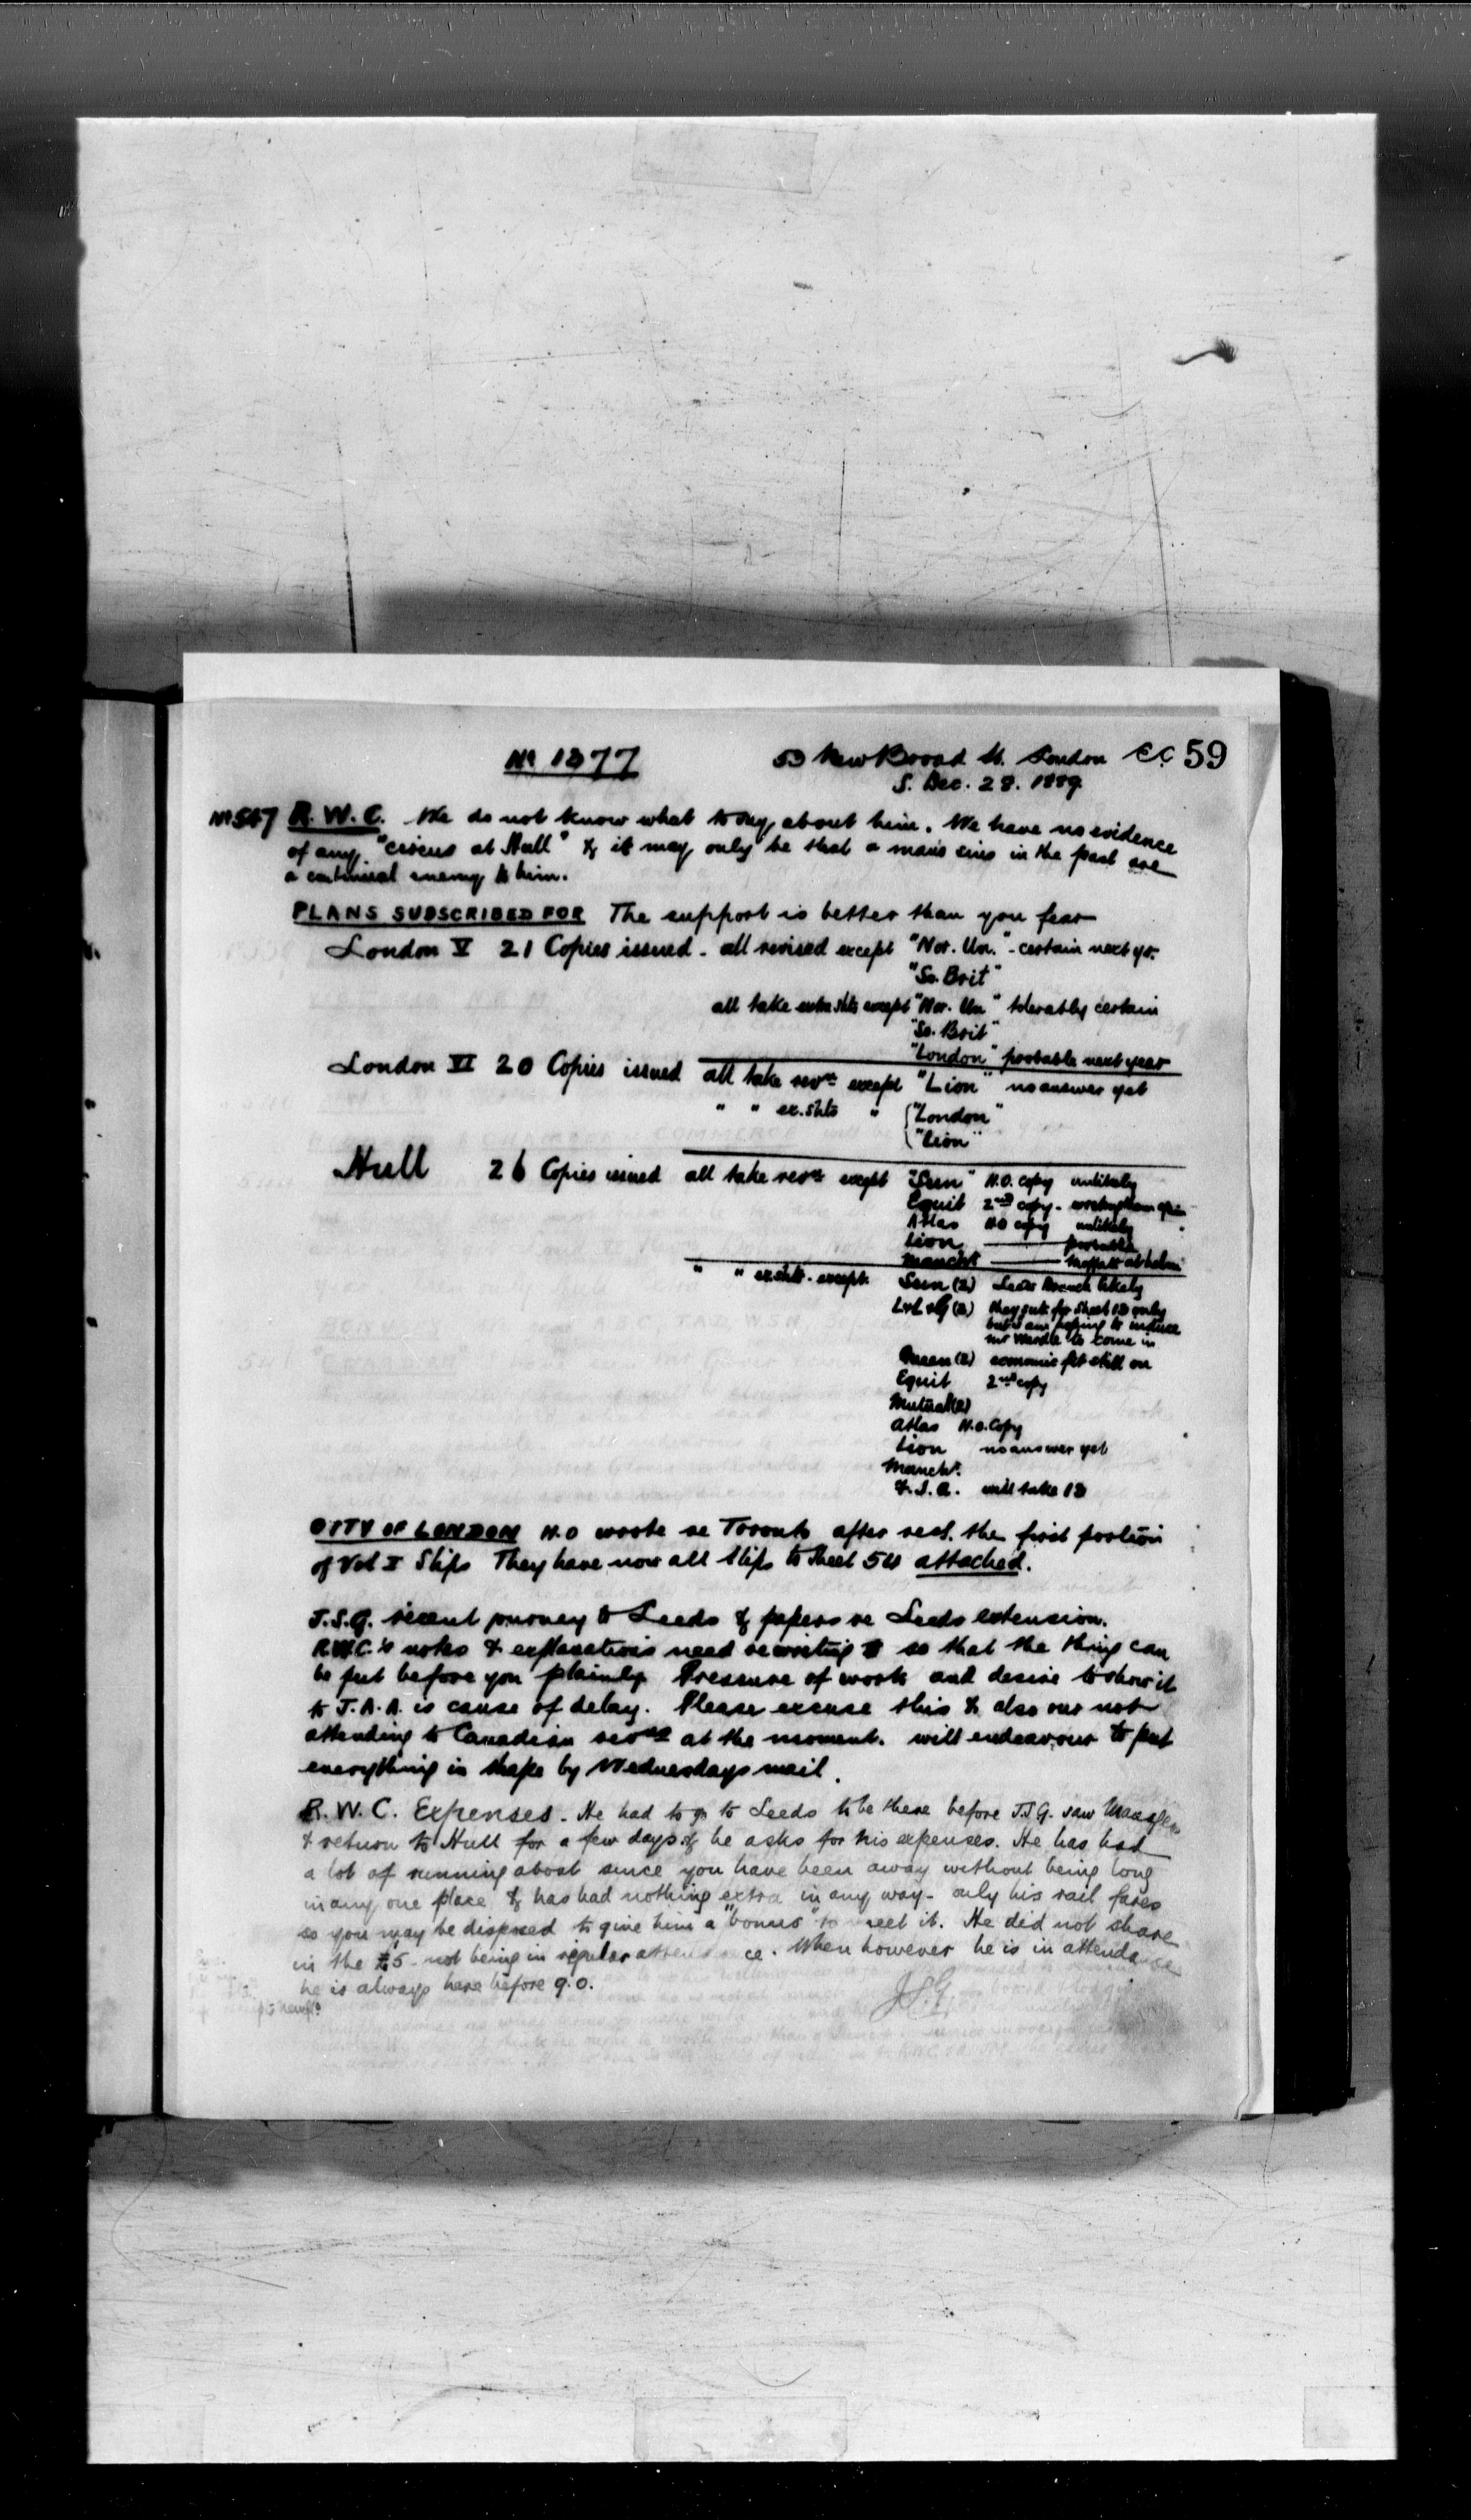 No 1377 53 New Broad St. London E.C. 59
S. Dec. 28. 1889
No 547 R.W.C. We do not know what to say about him. We have no evidence
of any "circus at Hull" & it may only be that a man's sins in the past are
a continual enemy to him.
PLANS SUBSCRIBED FOR The support is better than you fear
London V 21 Copies issued - all revised except "Nor. Un." - certain next yr.
"So. Brit"
all take extra shts except "Nor. Un" tolerably certain
"So. Brit"
"London" probable next year
London VI 20 Copies issued all take revns except "Lion" no answer yet
" " ex. shts " "London"
"Lion"
Hull 26 Copies issued all take revns except "Sun" H.O. copy unlikely
Equit 2nd copy -
Atlas HO copy unlikely
Lion probable
Manchr Moffatt at helm
" " ex. shts. except. Sun (2) Leeds Branch likely
L&L&G (2) they sub for sheet 13 only
but I am hoping to induce
Mr Wardle to come in
Queen (2) economic fit still on
Equit 2nd copy
Mutual (2)
Atlas H.O. Copy
Lion no answer yet
Manchr.
F.I.A. will take 13
CITY OF LONDON H.O wrote re Toronto after recd. the first portion
of Vol II Slips They have now all slips to sheet 54 attached.
J.S.G. recent journey to Leeds & papers re Leeds extension.
R.W.C.'s notes & explanations need rewriting so that the thing can
be put before you plainly Pressure of work and desire to show it
to J.A.A. is cause of delay. Please excuse this & also our not
attending to Canadian revns at the moment. will endeavour to put
everything in shape by Wednesdays mail.
R.W.C. Expenses - He had to go to Leeds to be there before J.S.G. saw Managers
& return to Hull for a few days & he asks for his expenses. He has had
a lot of running about since you have been away without being long
in any one place & has had nothing extra in any way - only his rail fares
so you may be disposed to give him a "bonus" to meet it. He did not share
in the £5 - not being in regular attendance. When however he is in attendance
he is always here before 9.0.
J.S.G.